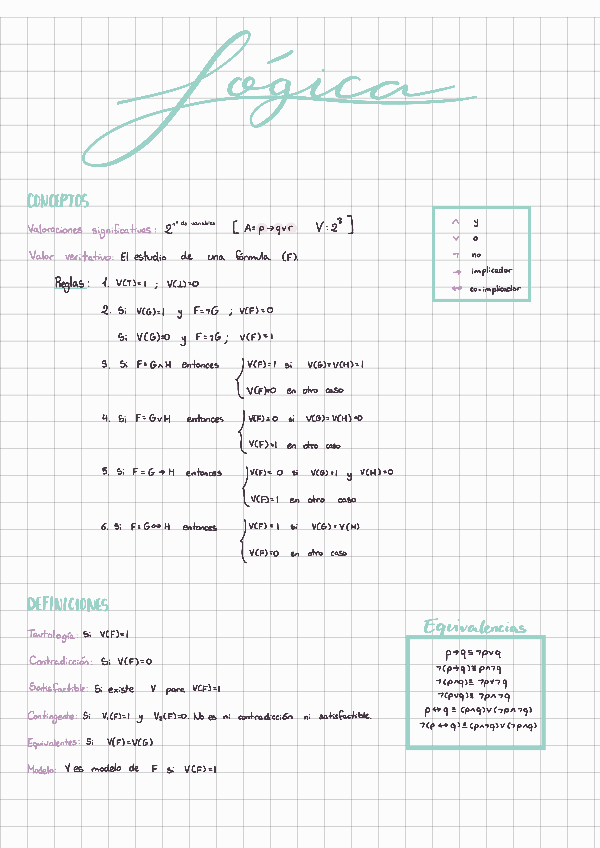 Lógica
CONCEPTOS
Valoraciones significativas: 2^nº de variables [ A≡ p→q∨r V: 2³ ]
Valor veritativo: El estudio de una fórmula (F).
Reglas: 1. V(⊤)=1 ; V(⊥)=0
2. Si V(G)=1 y F=¬G ; V(F)=0
Si V(G)=0 y F=¬G ; V(F)=1
3. Si F=G∧H entonces { V(F)=1 si V(G)=V(H)=1
V(F)=0 en otro caso
4. Si F=G∨H entonces { V(F)=0 si V(G)=V(H)=0
V(F)=1 en otro caso
5. Si F=G→H entonces { V(F)=0 si V(G)=1 y V(H)=0
V(F)=1 en otro caso
6. Si F=G↔H entonces { V(F)=1 si V(G)=V(H)
V(F)=0 en otro caso
∧ y
∨ o
¬ no
→ implicador
↔ co-implicador
DEFINICIONES
Tautología: Si V(F)=1
Contradicción: Si V(F)=0
Satisfactible: Si existe V para V(F)=1
Contingente: Si V₁(F)=1 y V₂(F)=0. No es ni contradicción ni satisfactible.
Equivalentes: Si V(F)=V(G)
Modelo: V es modelo de F si V(F)=1
Equivalencias
p→q≡¬p∨q
¬(p→q)≡p∧¬q
¬(p∧q)≡¬p∨¬q
¬(p∨q)≡¬p∧¬q
p↔q≡(p∧q)∨(¬p∧¬q)
¬(p↔q)≡(p∧¬q)∨(¬p∧q)